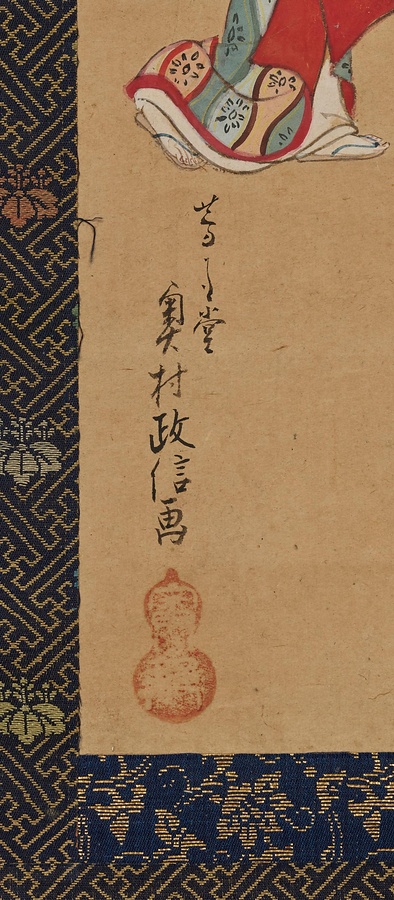 芳月堂
奥村政信画